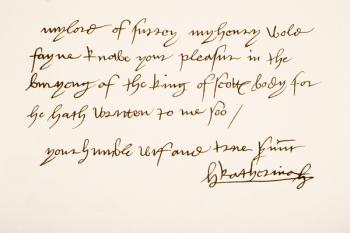 mylord of surrey my henry wold
fayne knowe your pleasur in the
buryeng of the king of scotts body for
he hath written to me soo /
your humble wif and trew s͡unt
katherina